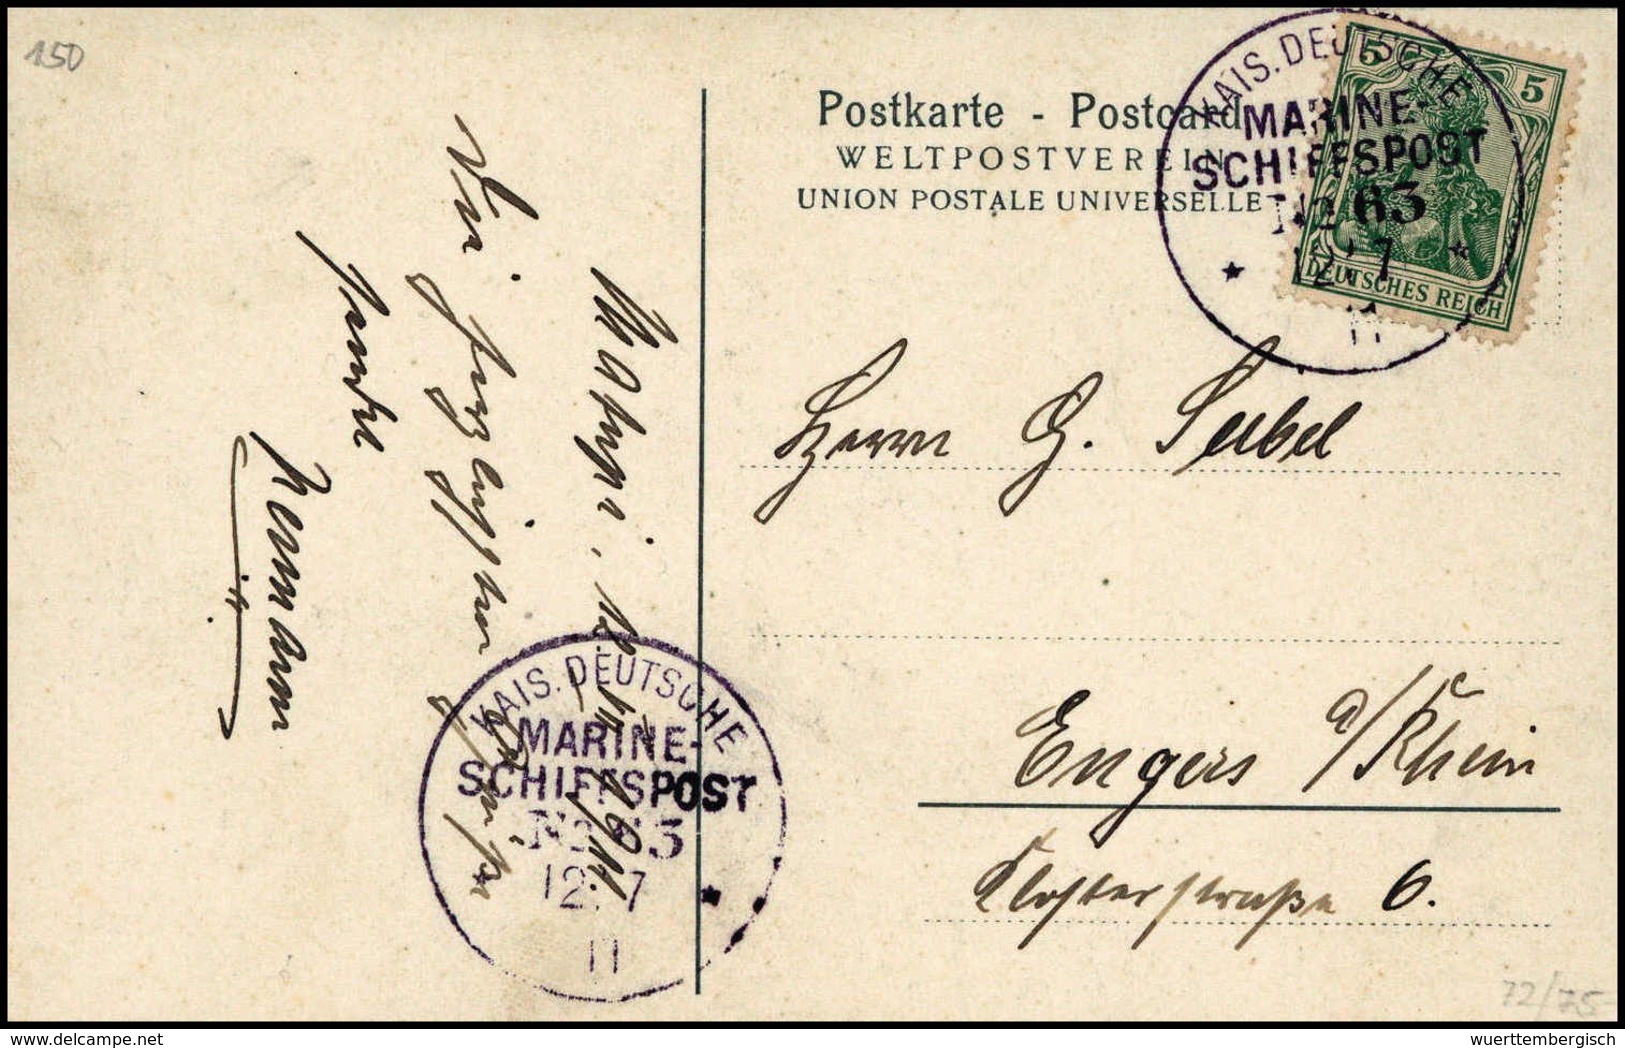 150
Postkarte - Postcard
WELTPOSTVEREIN
UNION POSTALE UNIVERSELLE
KAIS. DEUTSCHE
MARINE-
SCHIFFSPOST
No 63
12. 7
11
5 5
DEUTSCHES REICH
Matupi, 12. VII. 1911.
Die herzlichsten
Grüße
Hermann
KAIS. DEUTSCHE
MARINE-
SCHIFFSPOST
No 63
12. 7
11
Herrn G.
Engers a/Rhein
Klosterstraße 6.
72/75
wuerttembergisch